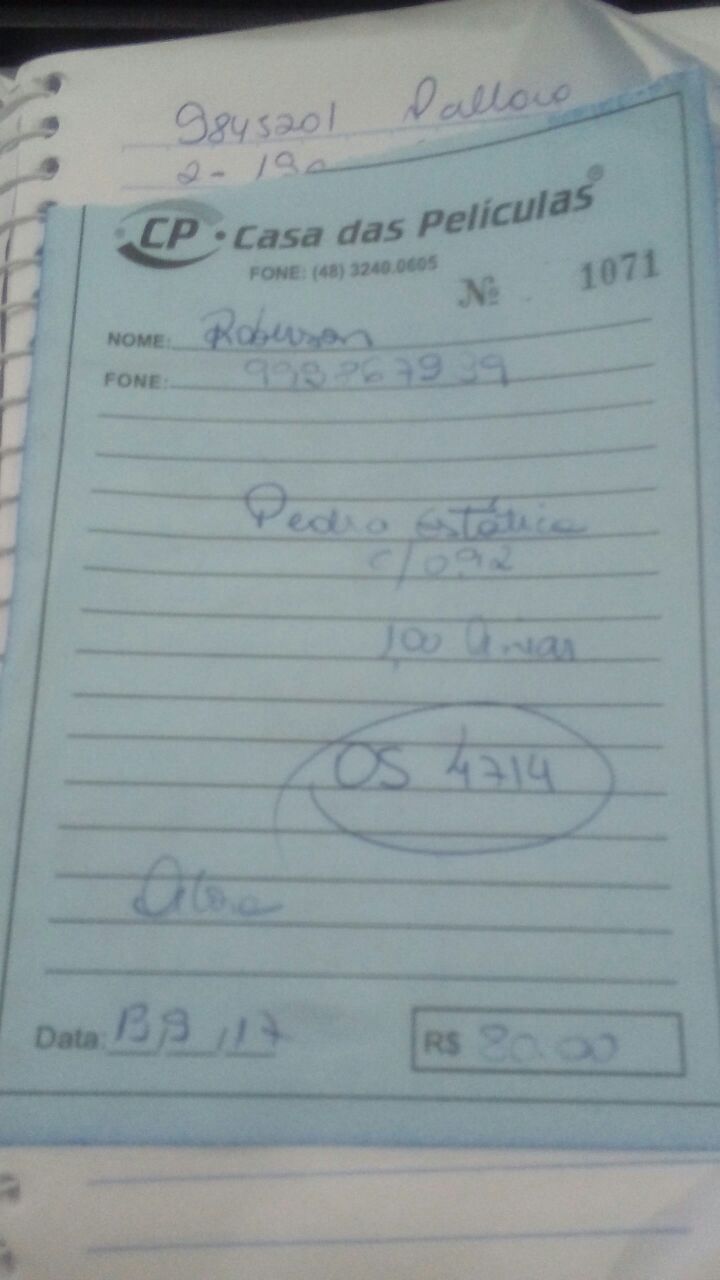 9845201
2-
CP • Casa das Películas®
FONE: (48) 3240.0605
Nº 1071
NOME: Roberson
FONE: 998767939
Pedro Estática
c/092
1,00
OS 4714
Data: 13, 9, 17
R$ 80.00